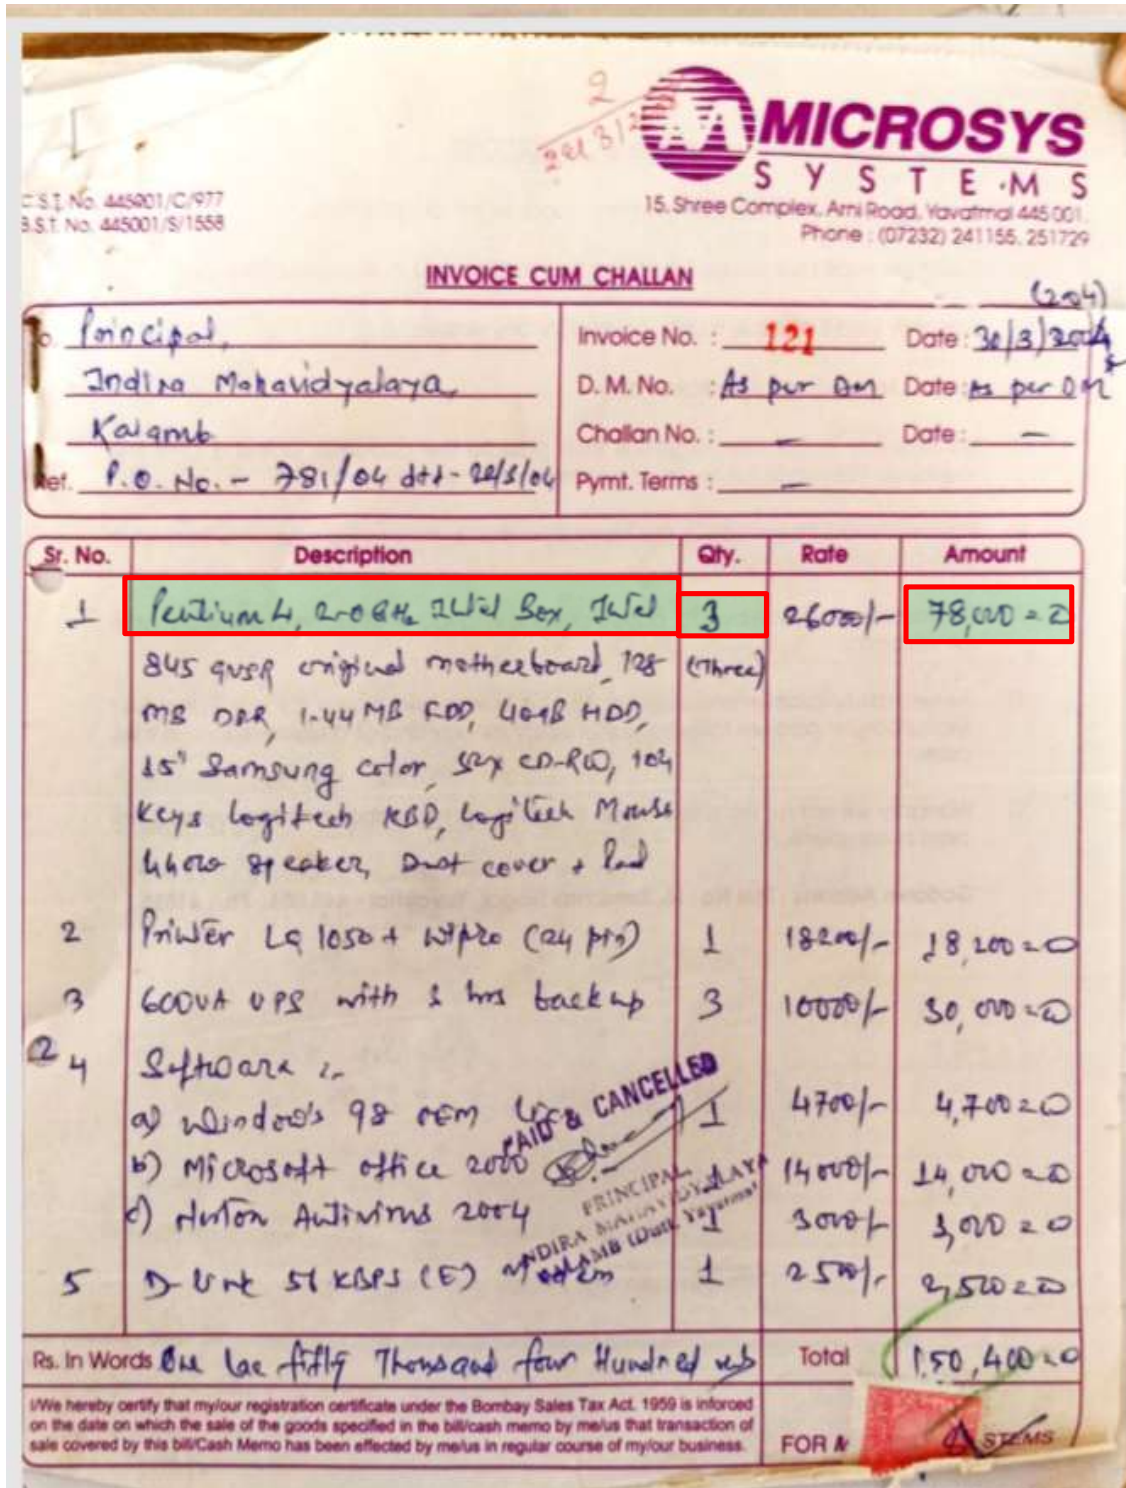 2
MICROSYS
SYSTEMS
C.S.T. No. 445001/C/977
B.S.T. No. 445001/S/1558
15, Shree Complex, Arni Road, Yavatmal 445 001.
Phone : (07232) 241155, 251729
INVOICE CUM CHALLAN
(204)
To Principal,
Invoice No. : 121 Date : 30/3/2004
Indira Mahavidyalaya,
D. M. No. : As per DM Date : As per DM
Kalamb
Challan No. : — Date : —
Ref. P.O. No. - 781/04 dtd -
Pymt. Terms : —
Sr. No. Description Qty. Rate Amount
1 Pentium 4, 2.0 GHz Intel Box, Intel 3 26000/- 78,000=0
845 original motherboard, 128 (Three)
MB DDR, 1.44 MB FDD, 40GB HDD,
15" Samsung color, 52x CD-RW, 104
Keys Logitech KBD, Logitech Mouse
speaker, Dust cover + Pad
2 Printer LQ 1050+ Wipro (24 pin) 1 18200/- 18,200=0
3 600VA UPS with 1 hrs backup 3 10000/- 30,000=0
2
4 Software :-
a) Window's 98 OEM Lic 1 4700/- 4,700=0
b) Microsoft office 2000 1 14000/- 14,000=0
c) Norton Antivirus 2004 1 3000/- 3,000=0
5 D-Link 56 KBPS (E) Modem 1 2500/- 2,500=0
PAID & CANCELLED
PRINCIPAL
INDIRA MAHAVIDYALAYA
KALAMB (Distt. Yavatmal)
Rs. In Words One Lac fifty Thousand four Hundred Total 1,50,400=0
I/We hereby certify that my/our registration certificate under the Bombay Sales Tax Act. 1959 is inforced
on the date on which the sale of the goods specified in the bill/cash memo by me/us that transaction of
sale covered by this bill/Cash Memo has been effected by me/us in regular course of my/our business.
FOR STEMS